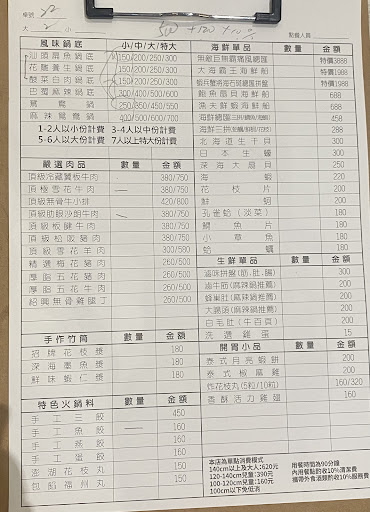 桌號
大 小 點餐人員
風味鍋底 小/中/大/特大
汕頭風魚鍋底 150/200/250/300
花雕養生鍋底 150/200/250/300
酸菜白肉鍋底 150/200/250/300
巴蜀麻辣鍋底 300/400/500/600
鴛鴦鍋 250/350/450/550
麻辣鴛鴦鍋 400/500/600/700
1-2人以小份計費 3-4人以中份計費
5-6人以大份計費 7人以上特大份計費
嚴選肉品 數量 金額
頂級冷藏翼板牛肉 380/750
頂極雪花牛肉 380/750
頂級無骨牛小排 420/800
頂級肋眼沙朗牛肉 380/750
頂級板腱牛肉 380/750
頂級松阪豬肉 380/750
頂級雪花羊肉 300/590
精選梅花豬肉 260/500
厚脂五花豬肉 260/500
厚脂五花牛肉 260/500
紹興無骨雞腿丁 260/500
手作竹筒 數量 金額
招牌花枝漿 180
深海墨魚漿 180
鮮味蝦仁漿 180
特色火鍋料 數量 金額
手工三餃 450
手工魚餃 160
手工燕餃 160
手工蛋餃 160
澎湖花枝丸 150
包餡福州丸 150
海鮮單品 數量 金額
無敵巨無霸痛風總匯 特價3888
大海霸王海鮮船 特價1988
特價1988
鮑魚扇貝海鮮船 688
漁夫鮮蝦海鮮船 688
海鮮總匯 458
海鮮三拼 288
北海道生干貝 300
日本生蠔 300
深海大扇貝 250
海蝦 220
花枝片 200
鮮蚵 200
孔雀蛤(淡菜) 180
鯛魚片 180
小章魚 180
蛤蠣 180
生鮮單品 數量 金額
滷味拼盤(筋.肚.腸) 300
滷牛筋(麻辣鍋推薦) 200
蜂巢肚(麻辣鍋推薦) 200
大腸頭(麻辣鍋推薦) 200
白毛肚(牛百頁) 200
洗選雞蛋 15
開胃小品 數量 金額
泰式月亮蝦餅 200
泰式椒麻雞 200
炸花枝丸(5粒/10粒) 160/320
香酥活力雞翅 160
本店為單點消費模式
140cm以上及大人:620元
120-140cm兒童:390元
100-120cm兒童:160元
100cm以下免低消
用餐時間為90分鐘
內用餐點酌收10%清潔費
攜帶外食酒類酌收10%服務費